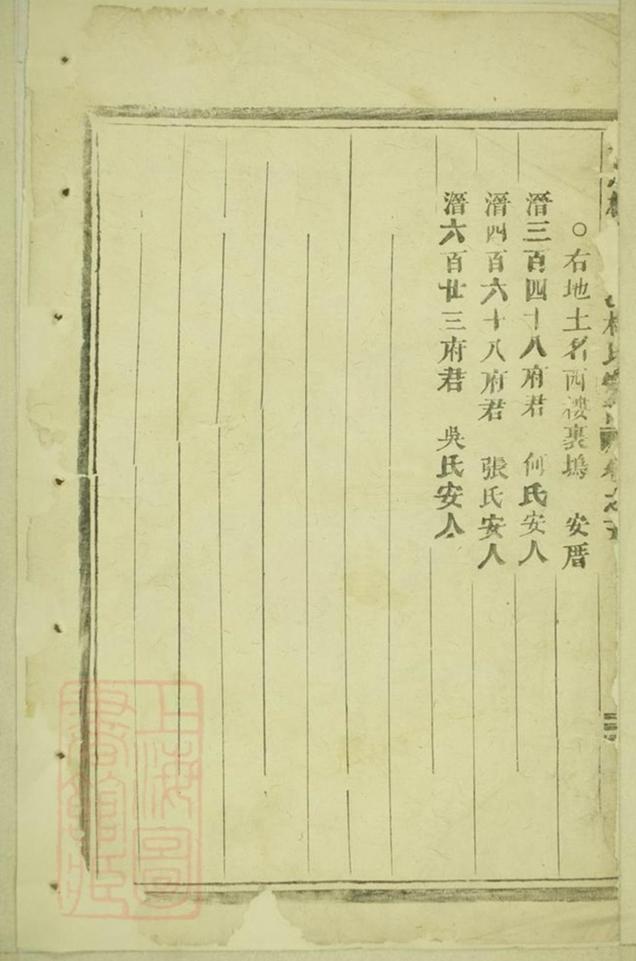 ○右地土名西樓裏塢 安厝
潛三百四十八府君 何氏安人
潛四百六十八府君 張氏安人
潛六百廿三府君 吳氏安人
上海圖書館